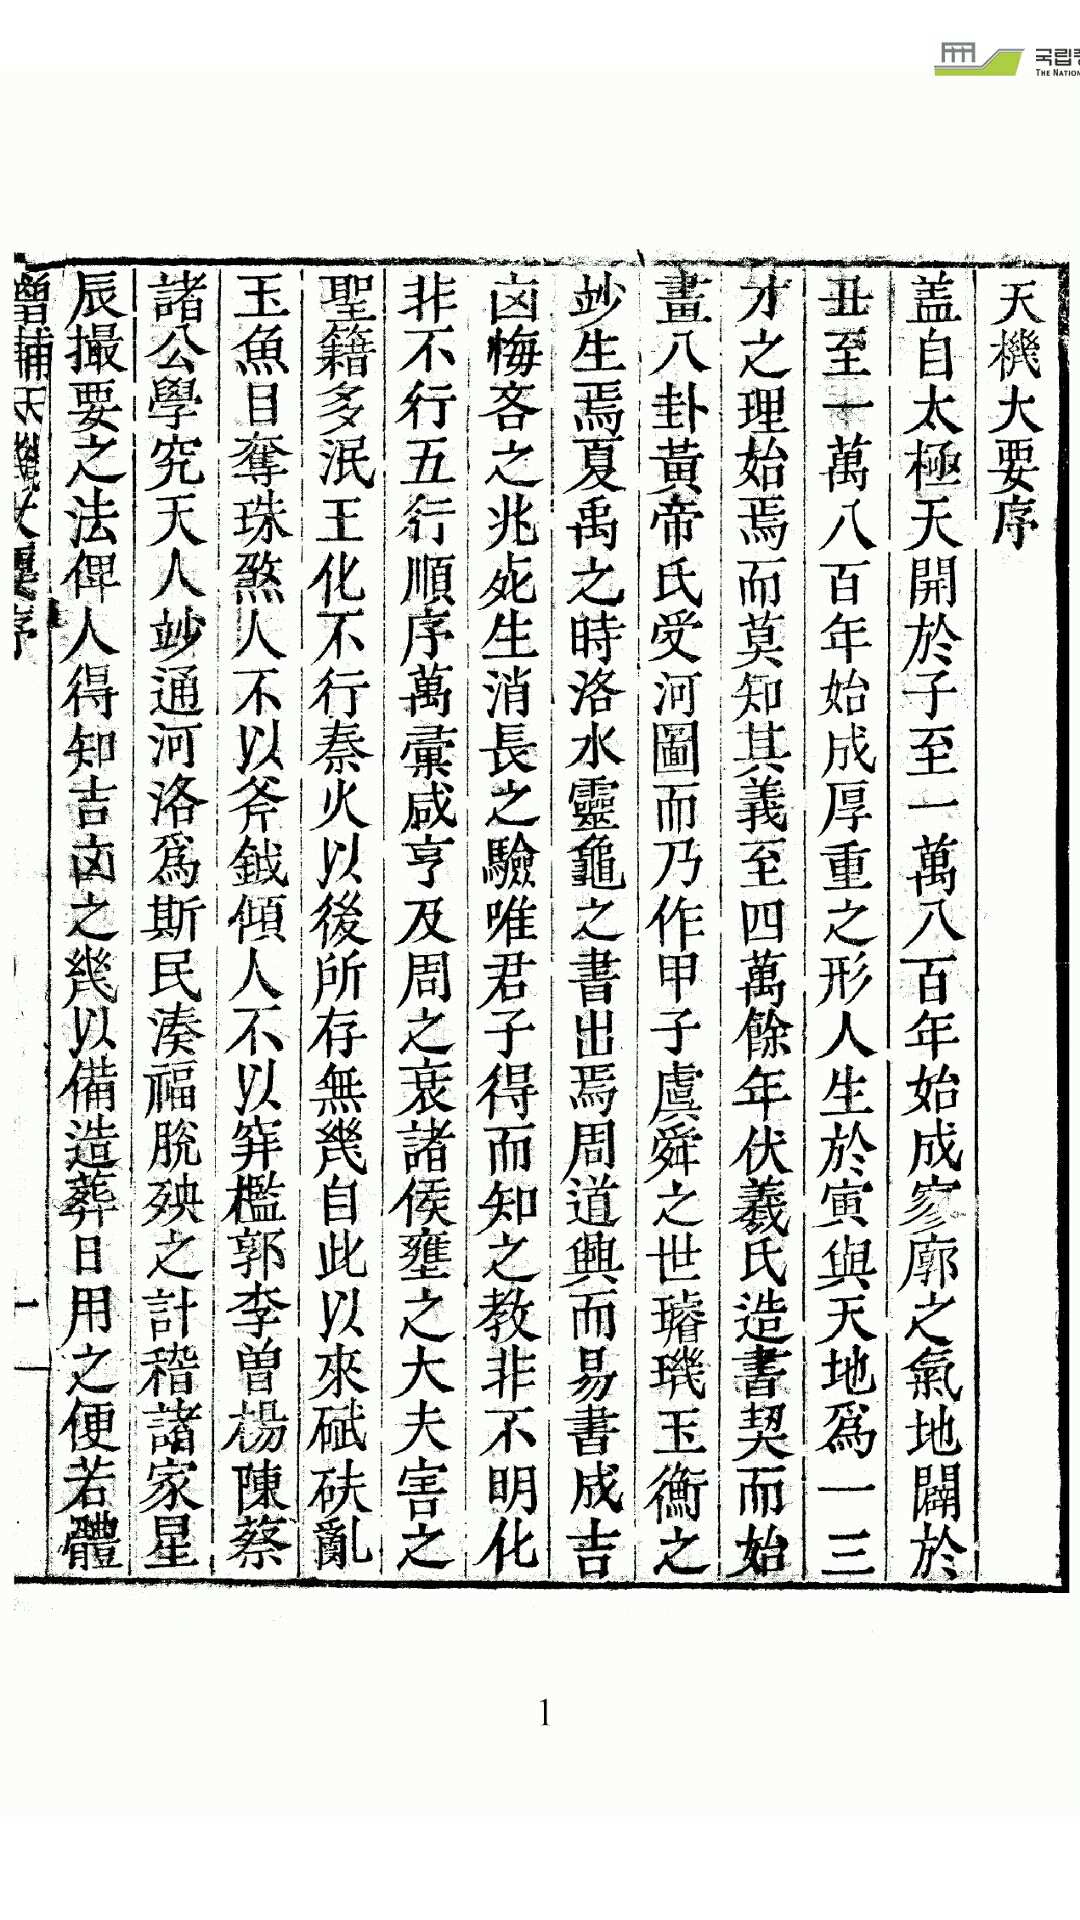 국립
THE NATION
天機大要序
盖自太極天開於子至一萬八百年始成寥廓之氣地闢於
丑至一萬八百年始成厚重之形人生於寅與天地爲一三
才之理始焉而莫知其義至四萬餘年伏羲氏造書契而始
畫八卦黃帝氏受河圖而乃作甲子虞舜之世璿璣玉衡之
竗生焉夏禹之時洛水靈龜之書出焉周道興而易書成吉
凶悔吝之兆死生消長之驗唯君子得而知之教非不明化
非不行五行順序萬彙咸亨及周之衰諸侯壅之大夫害之
聖籍多泯王化不行秦火以後所存無幾自此以來碔砆亂
玉魚目奪珠煞人不以斧鉞傾人不以穽檻郭李曽楊陳蔡
諸公學究天人竗通河洛爲斯民湊福脫殃之計稽諸家星
辰撮要之法俾人得知吉凶之幾以備造葬日用之便若體
增補天機大要序
一
1